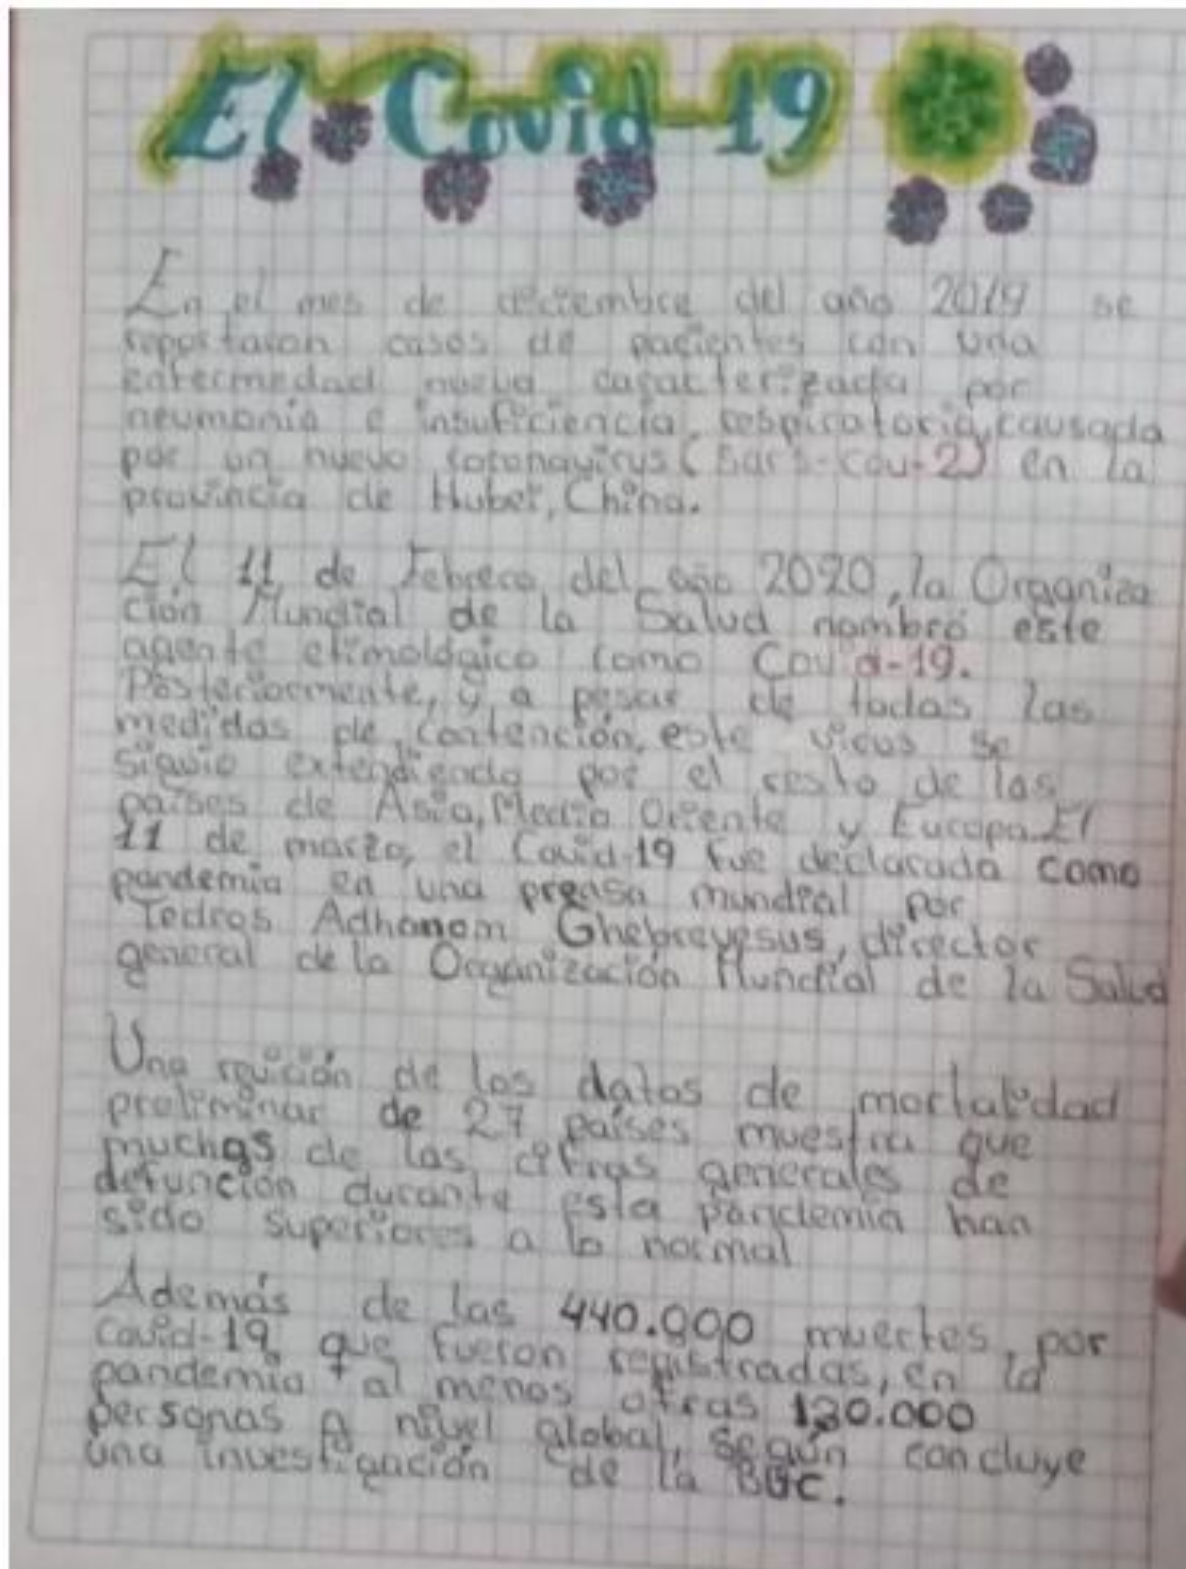 El Covid-19
En el mes de diciembre del año 2019 se
reportaron casos de pacientes con una
enfermedad nueva caracterizada por
neumonía e insuficiencia respiratoria, causada
por un nuevo coronavirus (Sars-cov-2) en la
provincia de Hubei, China.
El 11 de Febrero del año 2020, la Organiza
ción Mundial de la Salud nombró este
agente etimológico como Covid-19.
Posteriormente, y a pesar de todas las
medidas de contención, este virus se
siguio extendiendo por el resto de los
países de Asia, Medio Oriente y Europa. El
11 de marzo, el Covid-19 fue declarado como
pandemia en una prensa mundial por
Tedros Adhanom Ghebreyesus, director
general de la Organización Mundial de la Salud
Una revición de los datos de mortalidad
preliminar de 27 países muestra que
muchas de las cifras generales de
defunción durante esta pandemia han
sido superiores a lo normal
Además de las 440.000 muertes por
covid-19 que fueron registradas, en la
pandemia + al menos otras 130.000
personas a nivel global, según concluye
una investigación de la BBC.